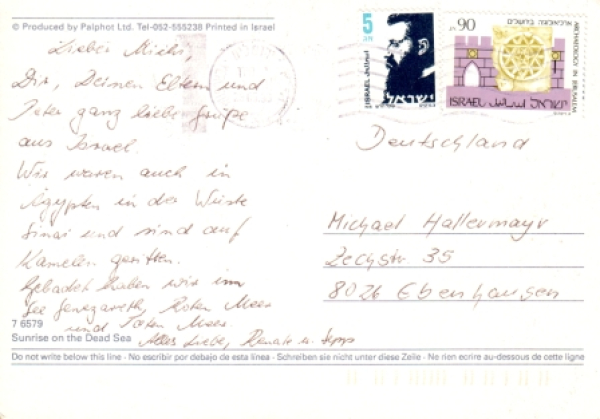 © Produced by Palphot Ltd. Tel-052-555238 Printed in Israel
Lieber Michi,
Dir, Deinen Eltern und
Peter ganz liebe Grüße
aus Israel.
Wir waren auch in
Ägypten in der Wüste
Sinai und sind auf
Kamelen geritten.
Gebadet haben wir im
See Genezareth, Roten Meer
und Toten Meer.
Alles Liebe, Renate u. Sepp
7 6579
Sunrise on the Dead Sea
Do not write below this line - No escribir por debajo de esta linea - Schreiben sie nicht unter diese Zeile - Ne rien ecrire au-dessous de cette ligne
5
ISRAEL
ישראל
90
ארכיאולוגיה בירושלים
ARCHAEOLOGY IN JERUSALEM
ISRAEL اسرائيل ישראל
Deutschland
Michael Hallermayr
Zechstr. 35
8026 Ebenhausen